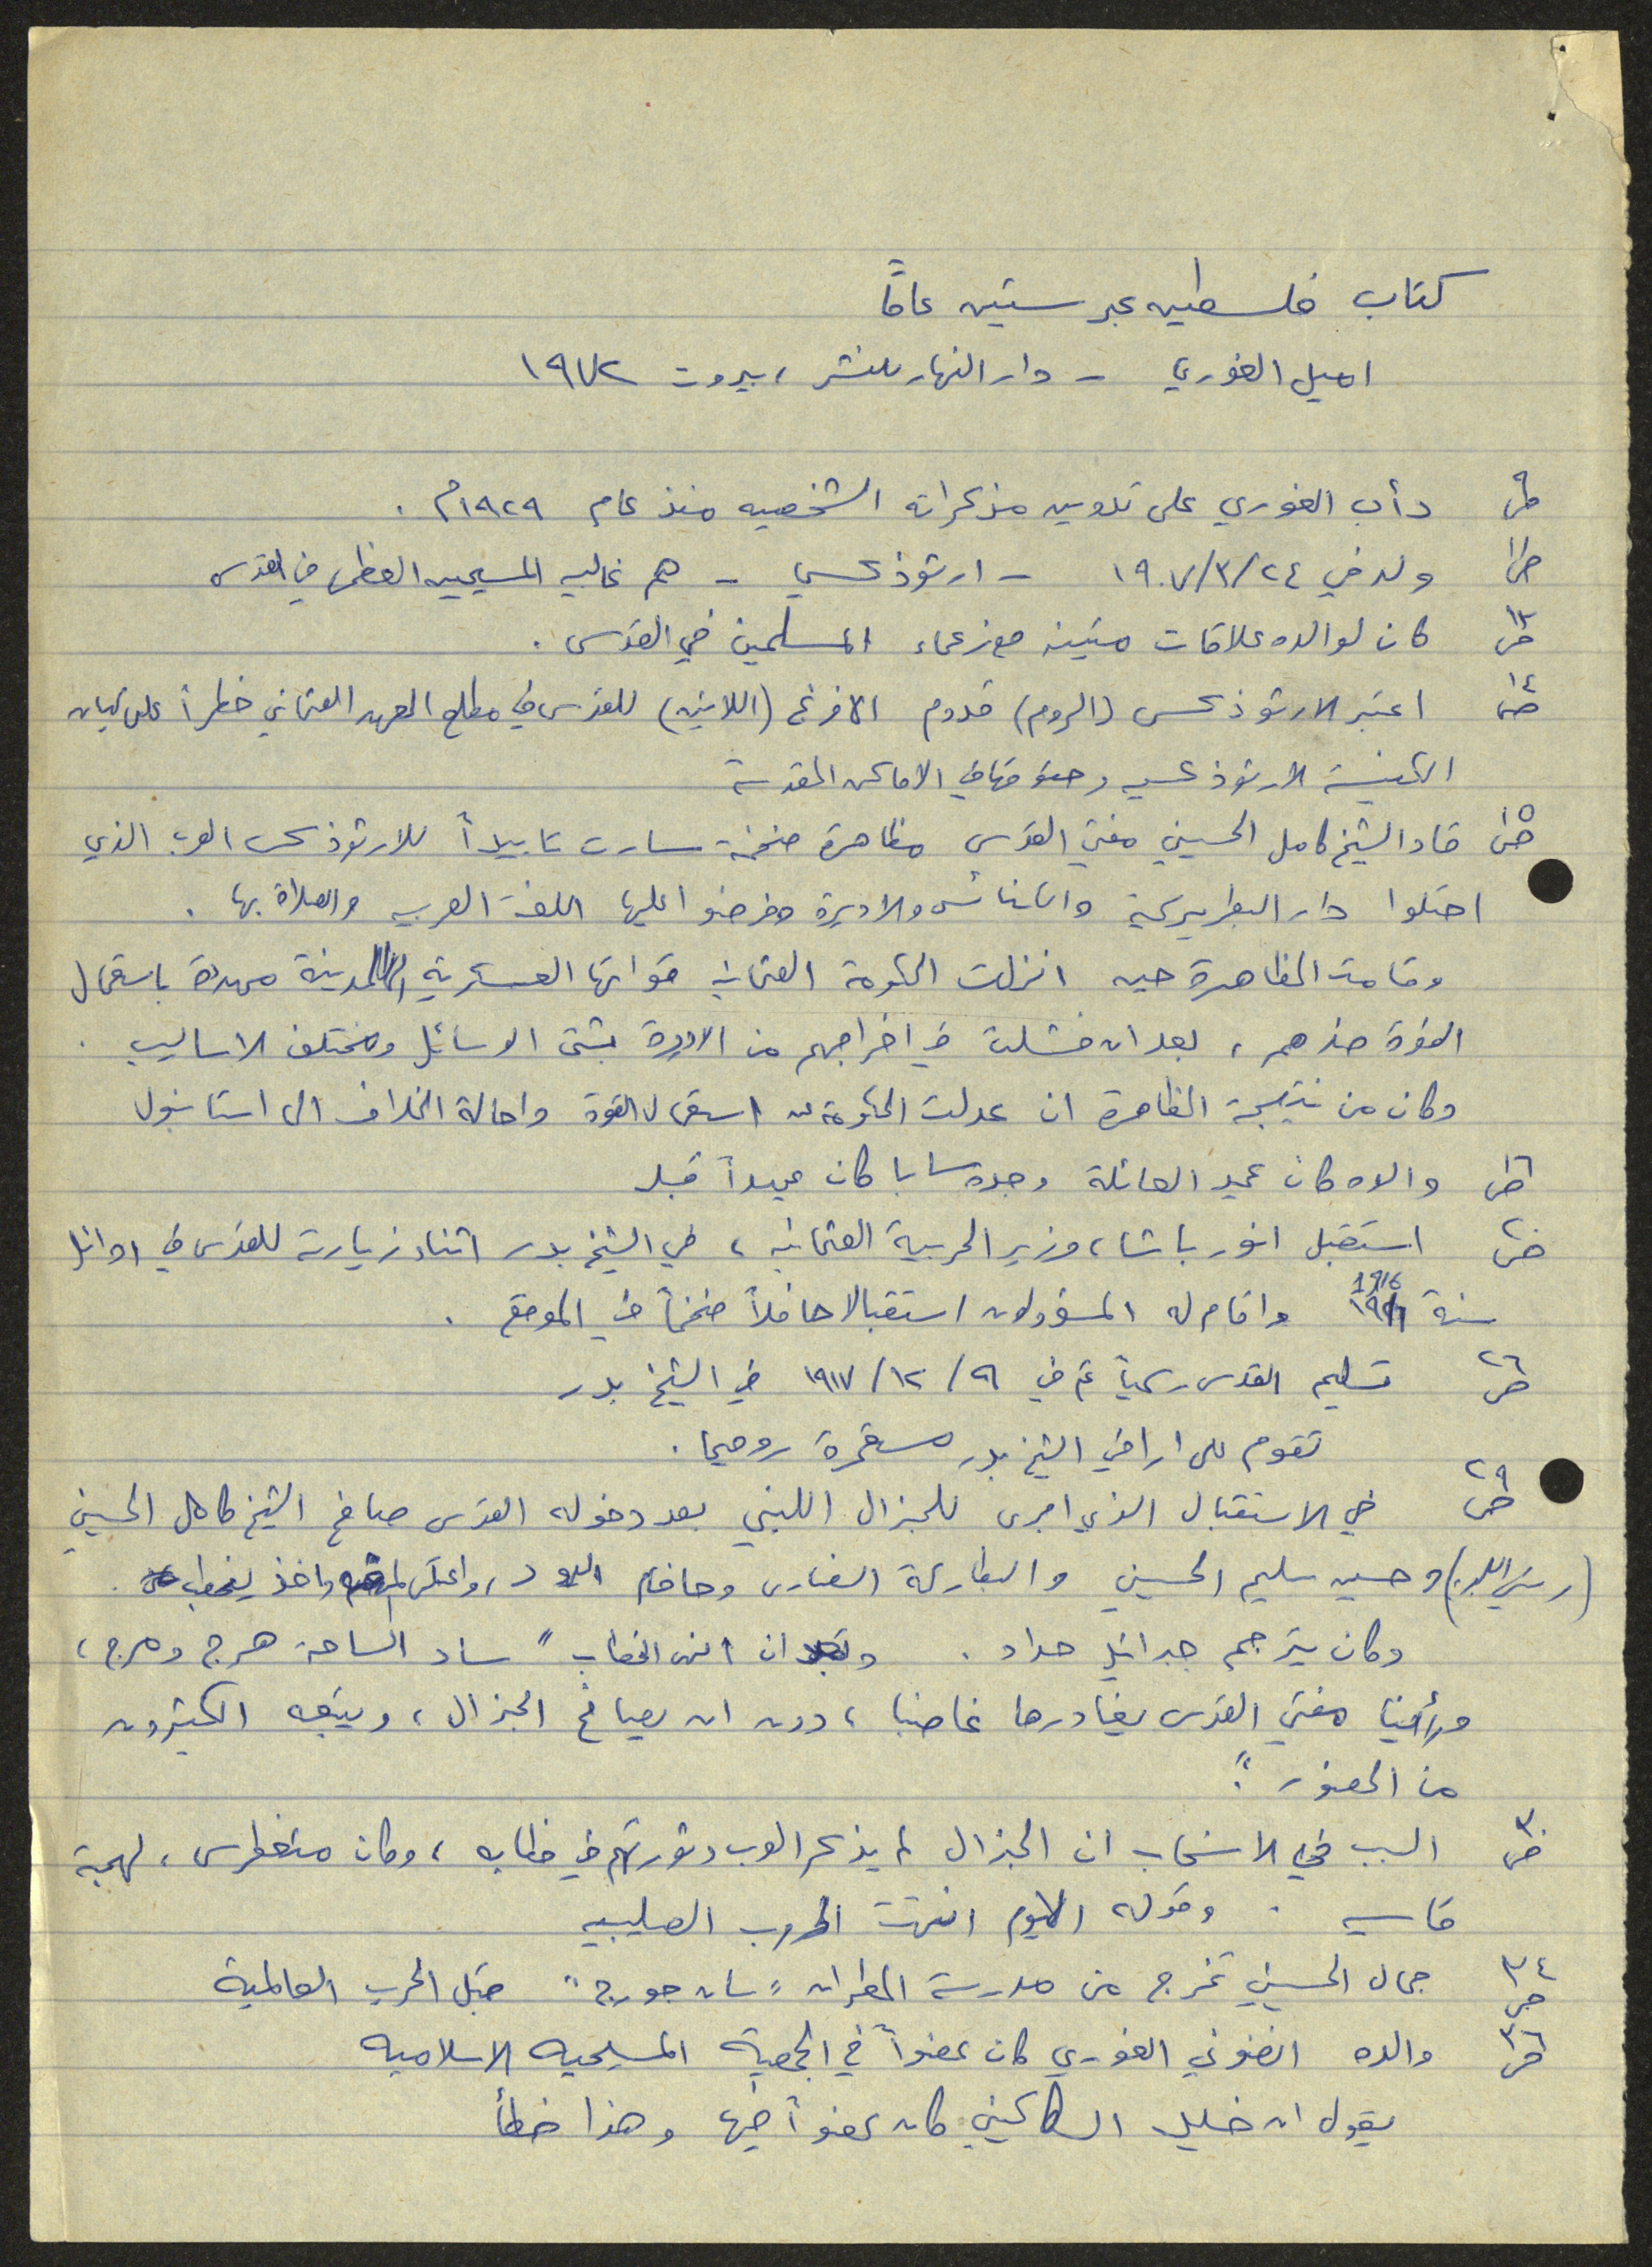 كتاب فلسطين عبر ستين عامًا
اميل الغوري - دار النهار للنشر ، بيروت ١٩٧٢
ص٩ دأب الغوري على تدوين مذكراته الشخصيه منذ عام ١٩٢٩م .
ص١١ ولد في ٢٤/٣/١٩٠٧ - ارثوذكسي - هم غالبيه المسيحيين العظمى في القدس
ص١٣ كان لوالده علاقات متينه مع زعماء المسلمين في القدس .
ص١٤ اعتبر الارثوذكس (الروم) قدوم الافرنج (اللاتين) للقدس في مطلع العهد العثماني خطراً على كيان
الكنيسة الارثوذكسيه وحقوقها في الاماكن المقدسة
ص١٥ قاد الشيخ كامل الحسيني مفتي القدس مظاهرة ضخمة سارت تاييداً للارثوذكس العرب الذي
احتلوا دار البطريركية والكنائس والاديرة وفرضوا عليها اللغة العربيه والصلاة بها .
وقامت المظاهرة حين انزلت الحكومة العثمانيه قواتها العسكرية المدينة مهددة باستعمال
القوة ضدهم ، بعد ان فشلت في اخراجهم من الاديرة بشتى الوسائل ومختلف الاساليب .
وكان من نتيجة المظاهرة ان عدلت الحكومة عن استعمال القوة واحالة الخلاف الى استانبول
ص١٦ والده كان عميد العائلة وجده سابا كان عميداً قبله
ص٢٠ استقبل انور باشا ، وزير الحربية العثمانيه ، في الشيخ بدر اثناء زيارته للقدس في اوائل
سنة 1916 واقام له المسؤولون استقبالا حافلاً ضخماً في الموقع .
ص٢٦ تسليم القدس رسمياً تم في ٩/١٢/١٩١٧ في الشيخ بدر
تقوم على اراضي الشيخ بدر مستعمرة روميما .
ص٢٩ في الاستقبال الذي اجرى للجنرال اللنبي بعد دخوله القدس صافح الشيخ كامل الحسيني
(رئيس البلدية) وحسين سليم الحسيني والبطاركة النصارى وحاخام اليهود ، واعتلى المنصه واخذ يخطب .
وكان يترجم جبرائيل حداد . وبعد ان انهى الخطاب " ساد الساحة هرج ومرج ،
ورأينا مفتي القدس يغادرها غاضبا ، دون ان يصافح الجنرال ، ويتبعه الكثيرون
من الحضور " .
ص٣٠ السبب في الانسحاب ان الجنرال لم يذكر العرب وثورتهم في خطابه ، وكان متغطرس ، لهجة
قاسيه . وقوله اليوم انتهت الحروب الصليبيه
ص٣٤ جمال الحسيني تخرج من مدرسة المطران " سان جورج " قبل الحرب العالمية
ص٣٦ والده انضوني الغوري كان عضواً في الجمعية المسيحيه الاسلاميه
يقول ان خليل السكاكيني كان عضواً فيها وهذا خطأ